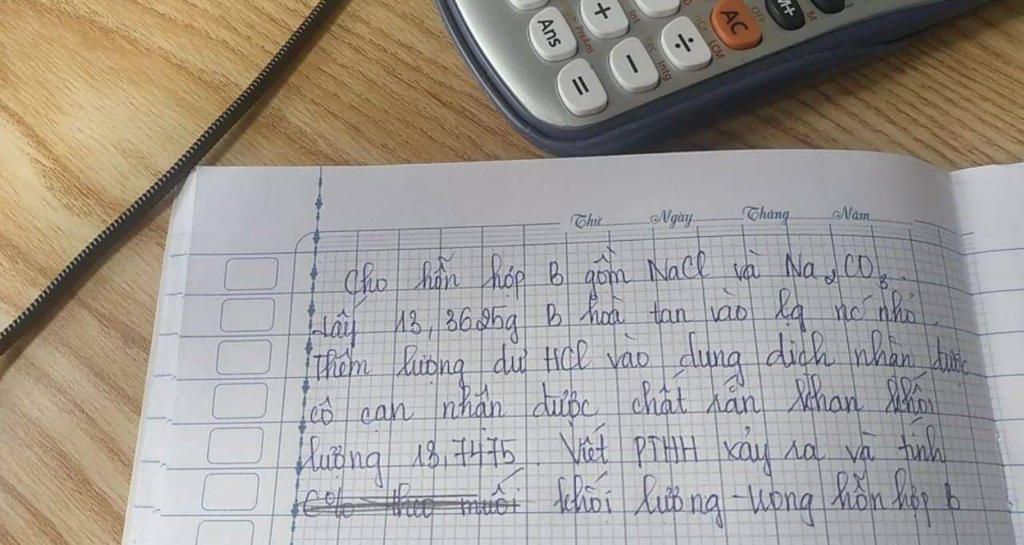 Ans
+
=
−
÷
AC
M+
Thứ Ngày Tháng Năm
Cho hỗn hợp B gồm NaCl và Na2CO3.
Lấy 13,3625g B hoà tan vào lg nc nhỏ.
Thêm lượng dư HCl vào dung dịch nhận được
cô cạn nhận được chất rắn khan khối
lượng 13,7475. Viết PTHH xảy ra và tính
khối lượng trong hỗn hợp b